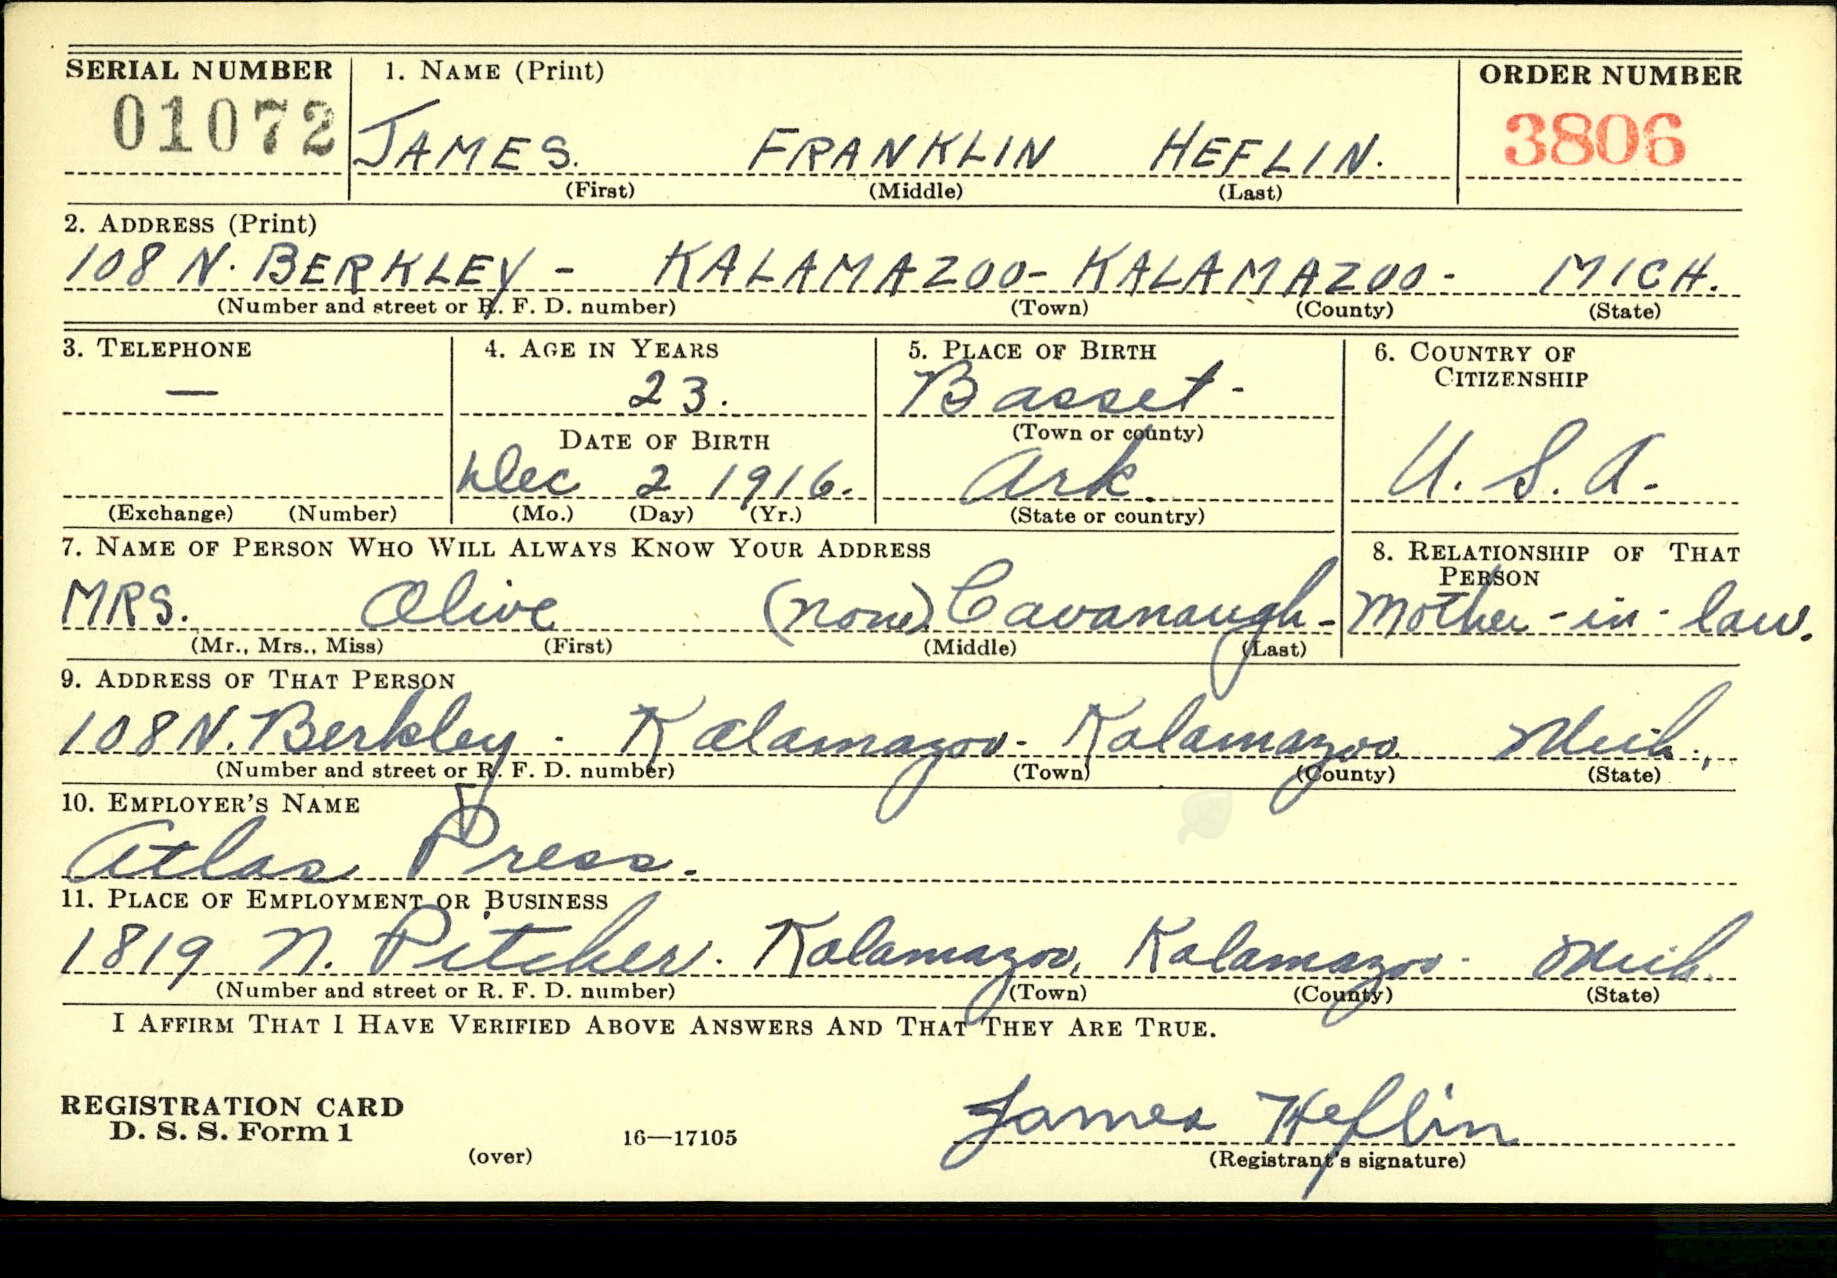 SERIAL NUMBER 1. NAME (Print) ORDER NUMBER
01072 JAMES. FRANKLIN HEFLIN. 3806
(First) (Middle) (Last)
2. ADDRESS (Print)
108 N. BERKLEY - KALAMAZOO - KALAMAZOO - MICH.
(Number and street or R. F. D. number) (Town) (County) (State)
3. TELEPHONE 4. AGE IN YEARS 5. PLACE OF BIRTH 6. COUNTRY OF CITIZENSHIP
— 23. Basset -
DATE OF BIRTH (Town or county)
Dec 2 1916. Ark. U. S. A.
(Exchange) (Number) (Mo.) (Day) (Yr.) (State or country)
7. NAME OF PERSON WHO WILL ALWAYS KNOW YOUR ADDRESS 8. RELATIONSHIP OF THAT PERSON
MRS. Olive (none) Cavanaugh - Mother-in-law.
(Mr., Mrs., Miss) (First) (Middle) (Last)
9. ADDRESS OF THAT PERSON
108 N. Berkley - Kalamazoo - Kalamazoo Mich.
(Number and street or R. F. D. number) (Town) (County) (State)
10. EMPLOYER'S NAME
Atlas Press.
11. PLACE OF EMPLOYMENT OR BUSINESS
1819 N. Pitcher. Kalamazoo, Kalamazoo - Mich.
(Number and street or R. F. D. number) (Town) (County) (State)
I AFFIRM THAT I HAVE VERIFIED ABOVE ANSWERS AND THAT THEY ARE TRUE.
REGISTRATION CARD
D. S. S. Form 1 James Heflin
(over) 16—17105 (Registrant's signature)